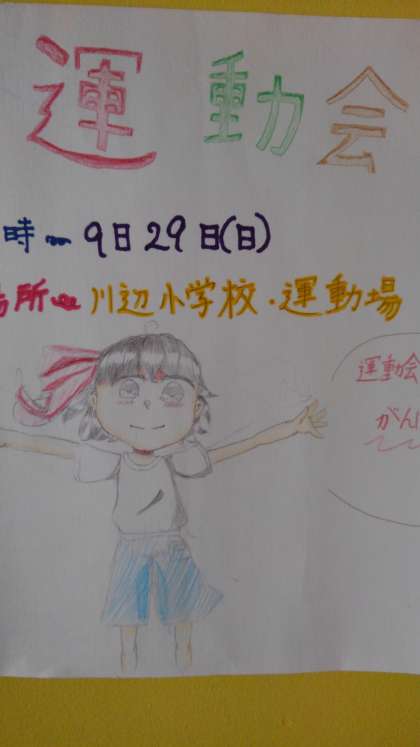 運動会
時〜9日29日(日)
所〜川辺小学校・運動場
運動会
がん